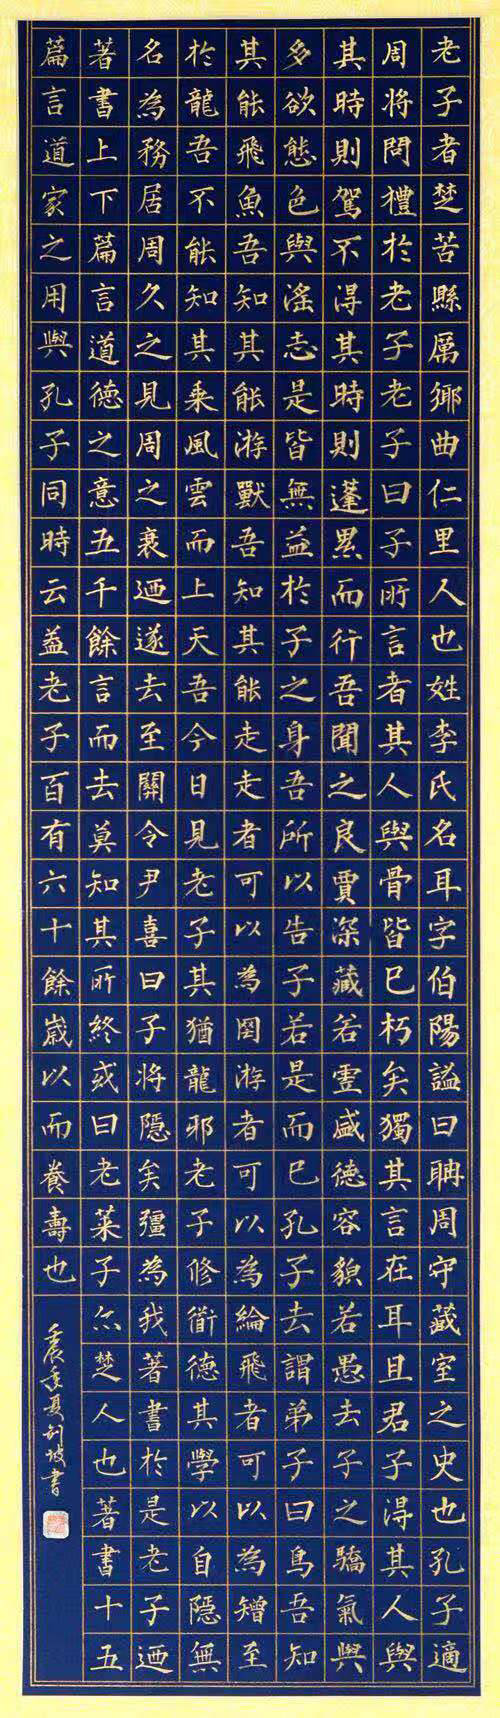 老子者楚苦縣厲鄉曲仁里人也姓李氏名耳字伯陽謚曰聃周守藏室之史也孔子適
周將問禮於老子老子曰子所言者其人與骨皆已朽矣獨其言在耳且君子得其人與
其時則駕不得其時則蓬累而行吾聞之良賈深藏若虛盛德容貌若愚去子之驕氣與
多欲態色與淫志是皆無益於子之身吾所以告子若是而已孔子去謂弟子曰鳥吾知
其能飛魚吾知其能游獸吾知其能走走者可以為罔游者可以為綸飛者可以為矰至
於龍吾不能知其乘風雲而上天吾今日見老子其猶龍邪老子修衜德其學以自隱無
名為務居周久之見周之衰迺遂去至關令尹喜曰子將隱矣彊為我著書於是老子迺
著書上下篇言道德之意五千餘言而去莫知其所終或曰老萊子亦楚人也著書十五
篇言道家之用與孔子同時云蓋老子百有六十餘歲以而養壽也
壬辰季夏坡書